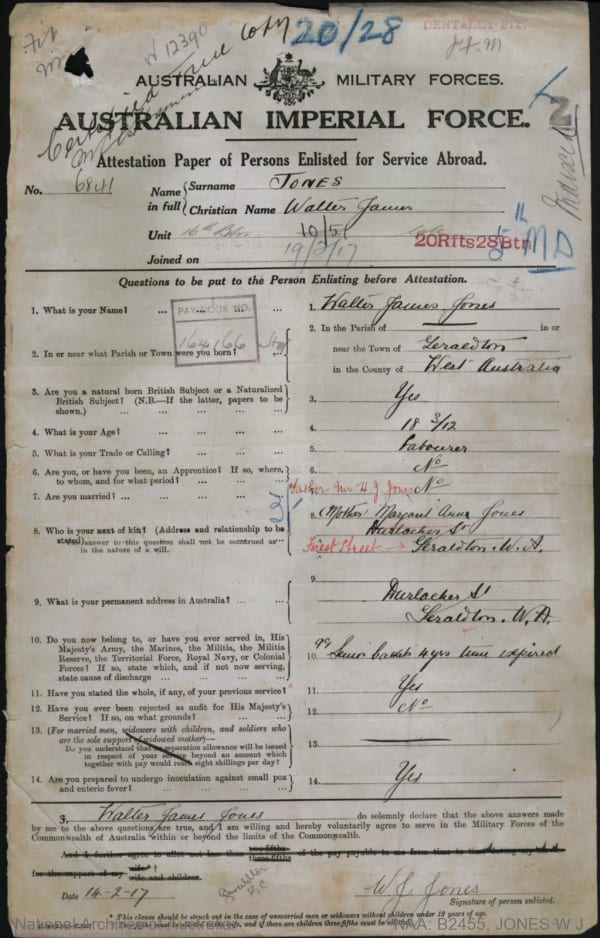 W 12390
Certified True Copy
20/28
DENTALLY FIT.
AUSTRALIAN MILITARY FORCES.
AUSTRALIAN IMPERIAL FORCE.
Attestation Paper of Persons Enlisted for Service Abroad.
No. 6841 Name in full { Surname JONES
Christian Name Walter James
Unit 10/5
20Rfts28Btn
5th MD
Joined on 19/3/17
Questions to be put to the Person Enlisting before Attestation.
PAY BOOK NO.
164166
1. What is your Name? ... ... ... 1. Walter James Jones
2. In or near what Parish or Town were you born? ... 2. In the Parish of — in or
near the Town of Geraldton
in the County of West Australia
3. Are you a natural born British Subject or a Naturalized
British Subject? (N.B.—If the latter, papers to be
shown.) ... ... ... ... 3. Yes
4. What is your Age? ... ... ... 4. 18 3/12
5. What is your Trade or Calling? ... ... ... 5. Labourer
6. Are you, or have you been, an Apprentice? If so, where,
to whom, and for what period? ... ... ... 6. No
7. Are you married? ... ... ... ... 7. No
Father - Mr. H. J. Jones
8. Who is your next of kin? (Address and relationship to be
stated) answer to this question shall not be construed as
in the nature of a will. 8. (Mother) Margaret Anne Jones
Durlacher St
Forest Street Geraldton. W.A.
9. What is your permanent address in Australia? ... ... 9. Durlacher St
Geraldton. W.A.
10. Do you now belong to, or have you ever served in, His
Majesty's Army, the Marines, the Militia, the Militia
Reserve, the Territorial Force, Royal Navy, or Colonial
Forces? If so, state which, and if not now serving,
state cause of discharge ... ... ... 10. Senior Cadets 4 yrs time expired
11. Have you stated the whole, if any, of your previous service? 11. Yes
12. Have you ever been rejected as unfit for His Majesty's
Service? If so, on what grounds? ... ... 12. No
13. (For married men, widowers with children, and soldiers who
are the sole support of widowed mother)—
Do you understand that no separation allowance will be issued
in respect of your service beyond an amount which
together with pay would reach eight shillings per day? 13. —
14. Are you prepared to undergo inoculation against small pox
and enteric fever? ... ... ... ... 14. Yes
I, Walter James Jones do solemnly declare that the above answers made
by me to the above questions are true, and I am willing and hereby voluntarily agree to serve in the Military Forces of the
Commonwealth of Australia within or beyond the limits of the Commonwealth.
And I further agree to allot not less than two-fifths three-fifths of the pay payable to me from time to time
for the support of my wife wife and children.
Date 14-2-17
Geraldton
W. J. Jones
Signature of person enlisted.
* This clause should be struck out in the case of unmarried men or widowers without children under 18 years of age.
National Archives of Australia NAA: B2455, JONES W J